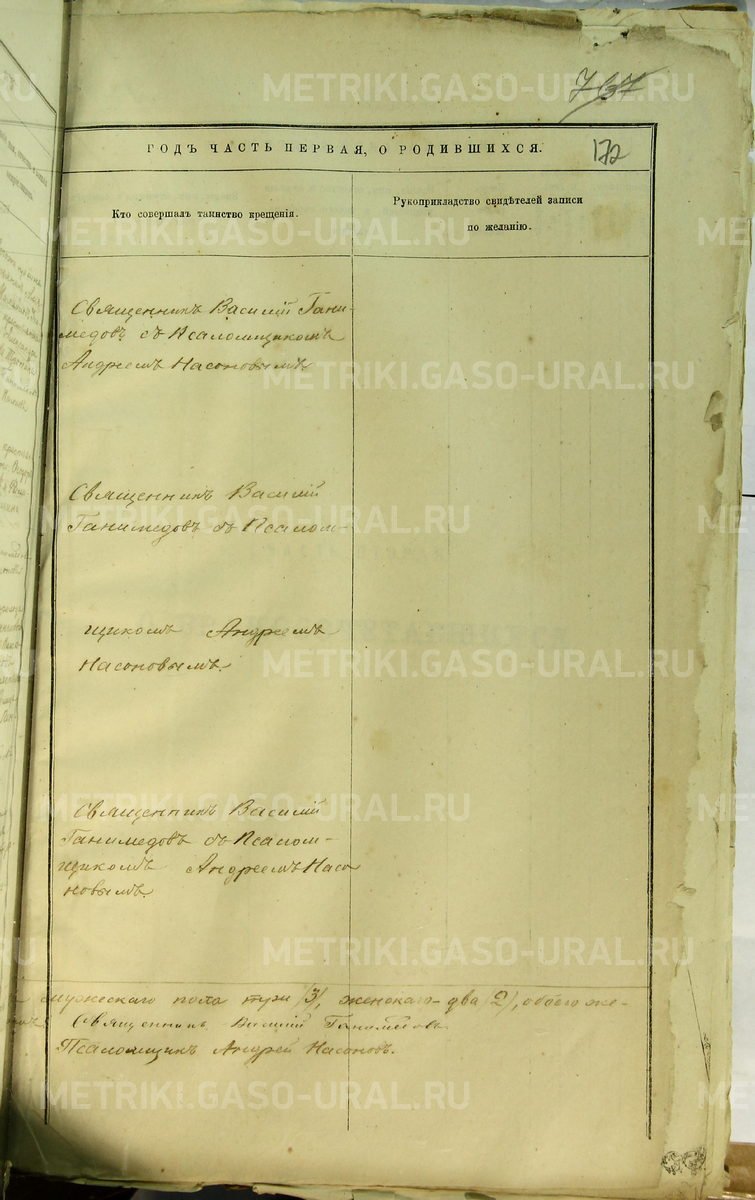 737
ГОДЪ ЧАСТЬ ПЕРВАЯ, О РОДИВШИХСЯ.
172
Кто совершалъ таинство крещенія.
Рукоприкладство свидѣтелей записи
по желанію.
Священникъ Василій Гани-
медовъ съ Псаломщикомъ
Андреемъ Насоновымъ
Священникъ Василій
Ганимедовъ съ Псалом-
щикомъ Андреемъ
Насоновымъ.
Священникъ Василій
Ганимедовъ съ Псалом-
щикомъ Андреемъ Насо
новымъ.
мужескаго пола три (3), женскаго два (2), обоего же-
Священникъ Василій Ганимедовъ.
Псаломщикъ Андрей Насоновъ.
METRIKI.GASO-URAL.RU